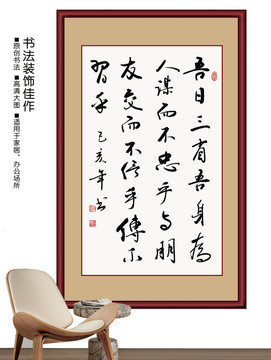 书法装饰佳作
■原创书法 ■高清大图 ■适用于家居、办公场所
吾日三省吾身為
人谋而不忠乎与朋
友交而不信乎傳不
習乎 己亥年书